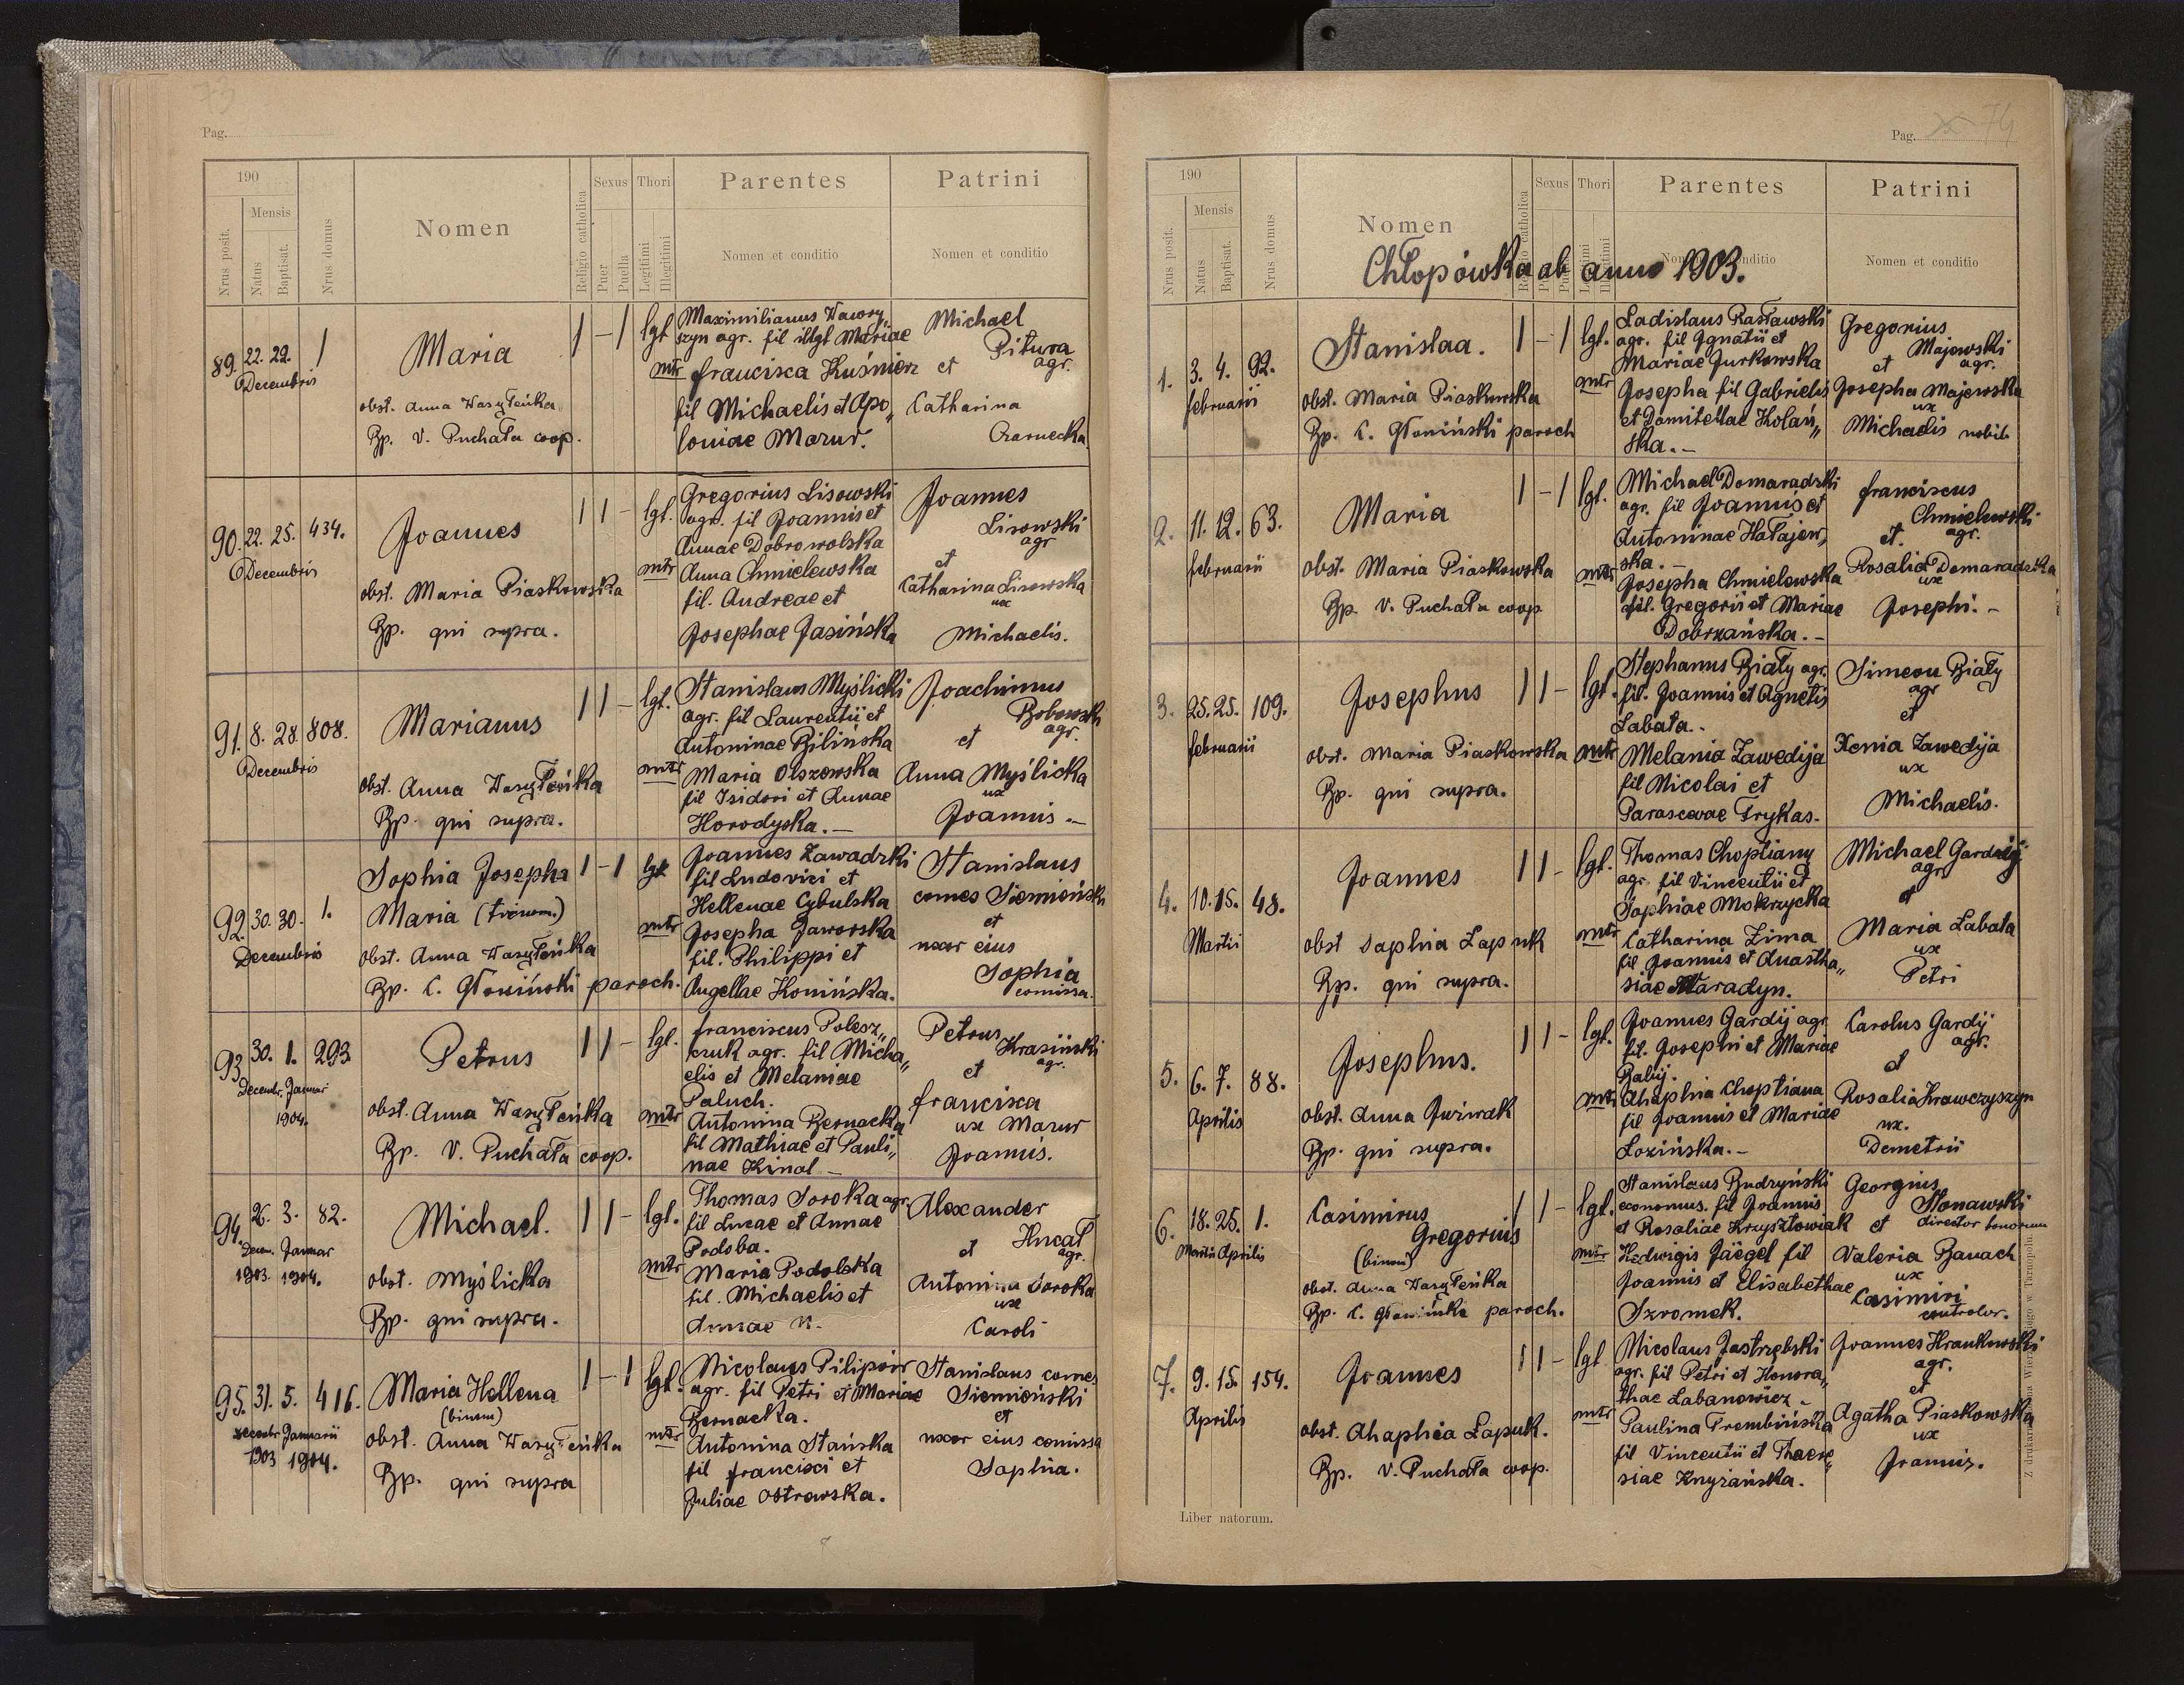 73
Pag.
190
Mensis
Nrus posit.
Natus
Baptisat.
Nrus domus
Nomen
Religio catholica
Sexus
Puer
Puella
Thori
Legitimi
Illegitimi
Parentes
Nomen et conditio
Patrini
Nomen et conditio
89. 22. 22. 1
Decembris
Maria
obst. Anna Wasyleńka
Bp. V. Puchała coop.
1 - 1 lgt
Maximilianus Wawry„
szyn agr. fil illgt Mariae
mtr Francisca Kuśnierz
fil Michaelis et Apo„
loniae Mazur.
Michael
Pitura
et agr.
Catharina
Czarnecka
90. 22. 25. 434.
Decembris
Joannes
obst. Maria Piaskowska
Bp. qui supra.
1 1 - lgt.
Gregorius Lisowski
agr. fil Joannis et
Annae Dobrowolska
mtr Anna Chmielewska
fil. Andreae et
Josephae Jasińska
Joannes
Lisowski
agr
et
Catharina Lisowska
ux
Michaelis.
91. 8. 28. 808.
Decembris
Marianus
obst. Anna Wasyleńka
Bp. qui supra.
1 1 - lgt.
Stanislaus Myślicki
agr. fil Laurentii et
Antoninae Bilińska
mtr Maria Olszewska
fil Isidori et Annae
Horodyska. -
Joachimus
Bobowski
et agr.
Anna Myślicka
ux
Joannis. -
92. 30. 30. 1.
Decembris
Sophia Josepha
Maria (trinom.)
obst. Anna Wasyleńka
Bp. C. Głowiński paroch.
1 - 1 lgt
Joannes Zawadzki
fil Ludovici et
Hellenae Cybulska
mtr Josepha Jaworska
fil. Philippi et
Angellae Konińska.
Stanislaus
comes Siemieński
et
uxor eius
Sophia
comissa.
93 30. 1. 293
Decembr. Januar
1904.
Petrus
obst. Anna Wasyleńka
Bp. V. Puchała coop.
1 1 - lgt.
Franciscus Polesz„
czuk agr. fil Micha„
elis et Melaniae
Paluch.
mtr Antonina Bernacka
fil Mathiae et Pauli„
nae Kinal -
Petrus
Krasiński
et agr.
Francisca
ux Mazur
Joannis.
94. 26. 3. 82.
Decem. Januar
1903. 1904.
Michael.
obst. Myślicka
Bp. qui supra.
1 1 - lgt.
Thomas Soroka agr.
fil Lucae et Annae
Podsba.
mtr Maria Podolska
fil. Michaelis et
Annae N.
Alexander
Hucał
et agr.
Antonina Soroka
ux
Caroli
95. 31. 5. 416.
Decembr Januarii
1903 1904.
Maria Hellena
(binom)
obst. Anna Wasyleńka
Bp. qui supra
1 - 1 lgt.
Nicolaus Pilipów
agr. fil Petri et Mariae
Bernacka.
mtr Antonina Stańska
fil Francisci et
Juliae Ostrowska.
Stanislaus comes
Siemieński
et
uxor eius comissa
Sophia.
Pag. 74
190
Mensis
Nrus posit.
Natus
Baptisat.
Nrus domus
Nomen
Religio catholica
Sexus
Thori
Parentes
Nomen et conditio
Patrini
Nomen et conditio
Chłopówka ab anno 1903.
1. 3. 4. 92.
Februarii
Stanislaa.
obst. Maria Piaskowska
Bp. C. Głowiński paroch
1 - 1 lgt.
Ladislaus Rasławski
agr. fil Ignatii et
Mariae Jurkowska
mtr Josepha fil Gabrielis
et Domitellae Kolań„
ska. -
Gregorius
Majewski
et agr.
Josepha Majewska
ux
Michaelis nobil
2. 11. 12. 63.
Februarii
Maria
obst. Maria Piaskowska
Bp. V. Puchała coop
1 - 1 lgt.
Michael Domaradzki
agr. fil Joannis et
Antoninae Hałajew„
ska. -
mtr Josepha Chmielewska
fil. Gregorii et Mariae
Dobrzańska. -
Franciscus
Chmielewski
et. agr.
Rosalia Domaradzka
ux
Josephi. -
3. 25. 25. 109.
Februarii
Josephus
obst. Maria Piaskowska
Bp. qui supra.
1 1 - lgt.
Stephanus Biały agr.
fil. Joannis et Agnetis
Labata. -
mtr Melania Zawedija
fil Nicolai et
Parascevae Frykas.
Simeon Biały
agr
et
Xenia Zawedija
ux
Michaelis.
4. 10. 15. 48.
Martii
Joannes
obst Sophia Łapuk
Bp. qui supra.
1 1 - lgt.
Thomas Choptiany
agr. fil Vincentii et
Sophiae Mokrzycka
mtr Catharina Zima
fil Joannis et Anastha„
siae Maradyn.
Michael Gardij
agr
et
Maria Labata
ux
Petri
5. 6. 7. 88.
Aprilis
Josephus.
obst. Anna Juzwak
Bp. qui supra.
1 1 - lgt.
Joannes Gardij agr
fil. Josephi et Mariae
Babij.
mtr Ahaphia Choptiana
fil Joannis et Mariae
Łozińska. -
Carolus Gardij
agr.
et
Rosalia Krawczyszyn
ux.
Demetrii
6. 18. 25. 1.
Martii Aprilis
Casimirus
Gregorius
(binom)
obst. Anna Wasyleńka
Bp. C. Głowiński paroch.
1 1 - lgt.
Stanislaus Budzyński
economus. fil Joannis
et Rosaliae Krzysztowiak
mtr Hedwigis Jäegel fil
Joannis et Elisabethae
Szromek.
Georgius
Słonawski
et director bonorum
Valeria Banach
ux
Casimiri
controlor.
7. 9. 15. 154.
Aprilis
Joannes
obst. Ahaphia Łapuk.
Bp. V. Puchała coop.
1 1 - lgt
Nicolaus Jastrzębski
agr. fil Petri et Honora„
thae Labanowicz -
mtr Paulina Trembińska
fil Vincentii et Thaere„
siae Knyżańska.
Joannes Krankowski
agr.
et
Agatha Piaskowska
ux
Joannis.
Liber natorum.